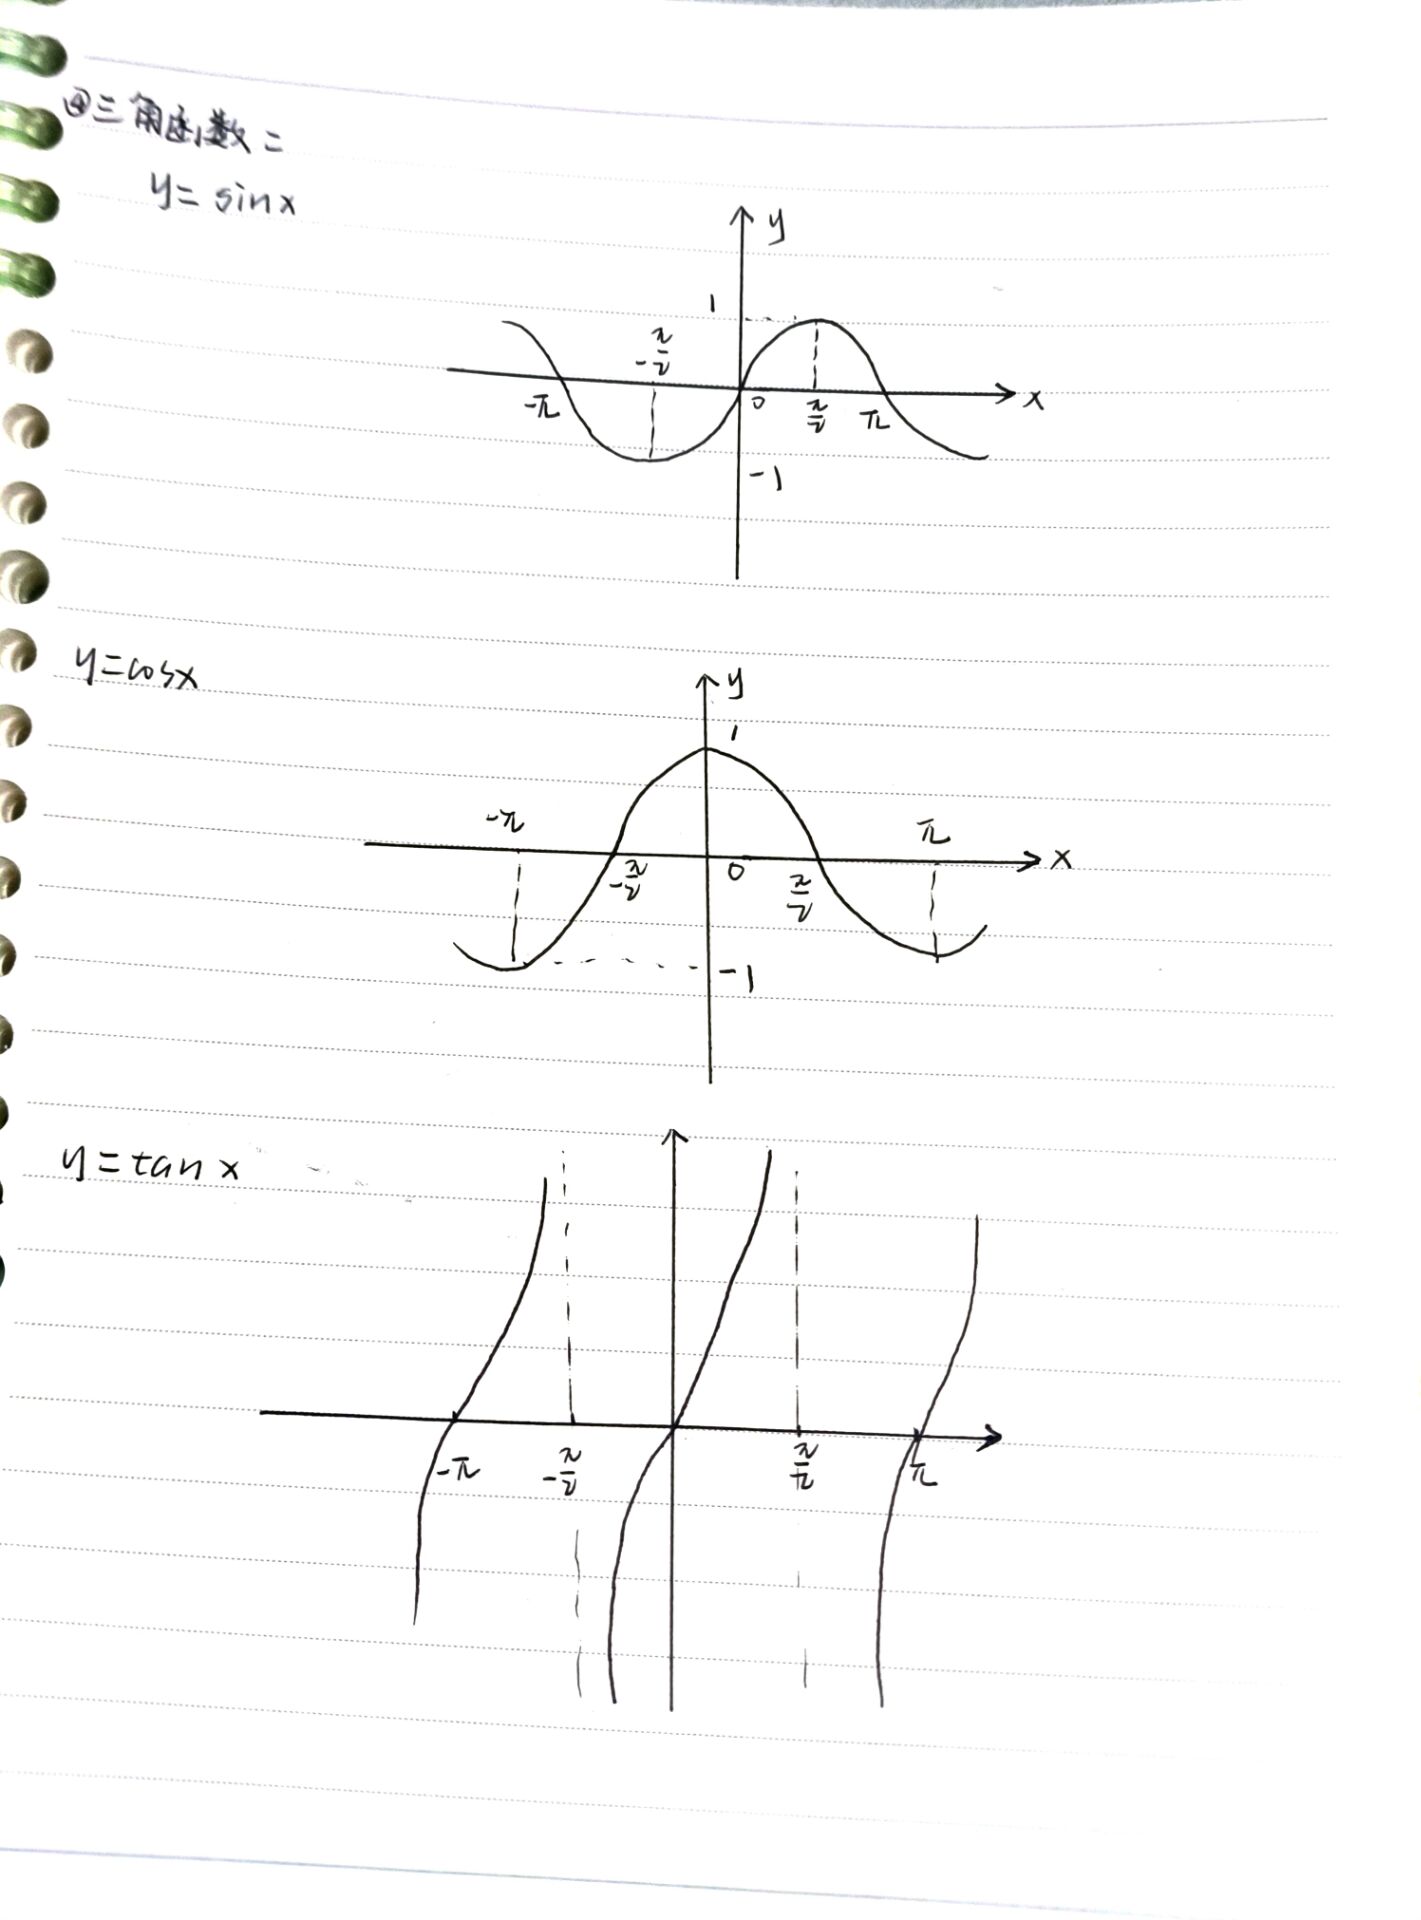 ④三角函数:
y=sinx
y
1
-π/2
-π
0
π/2
π
x
-1
y=cosx
y
1
-π
π
x
-π/2
0
π/2
-1
y=tanx
-π
-π/2
π/2
π